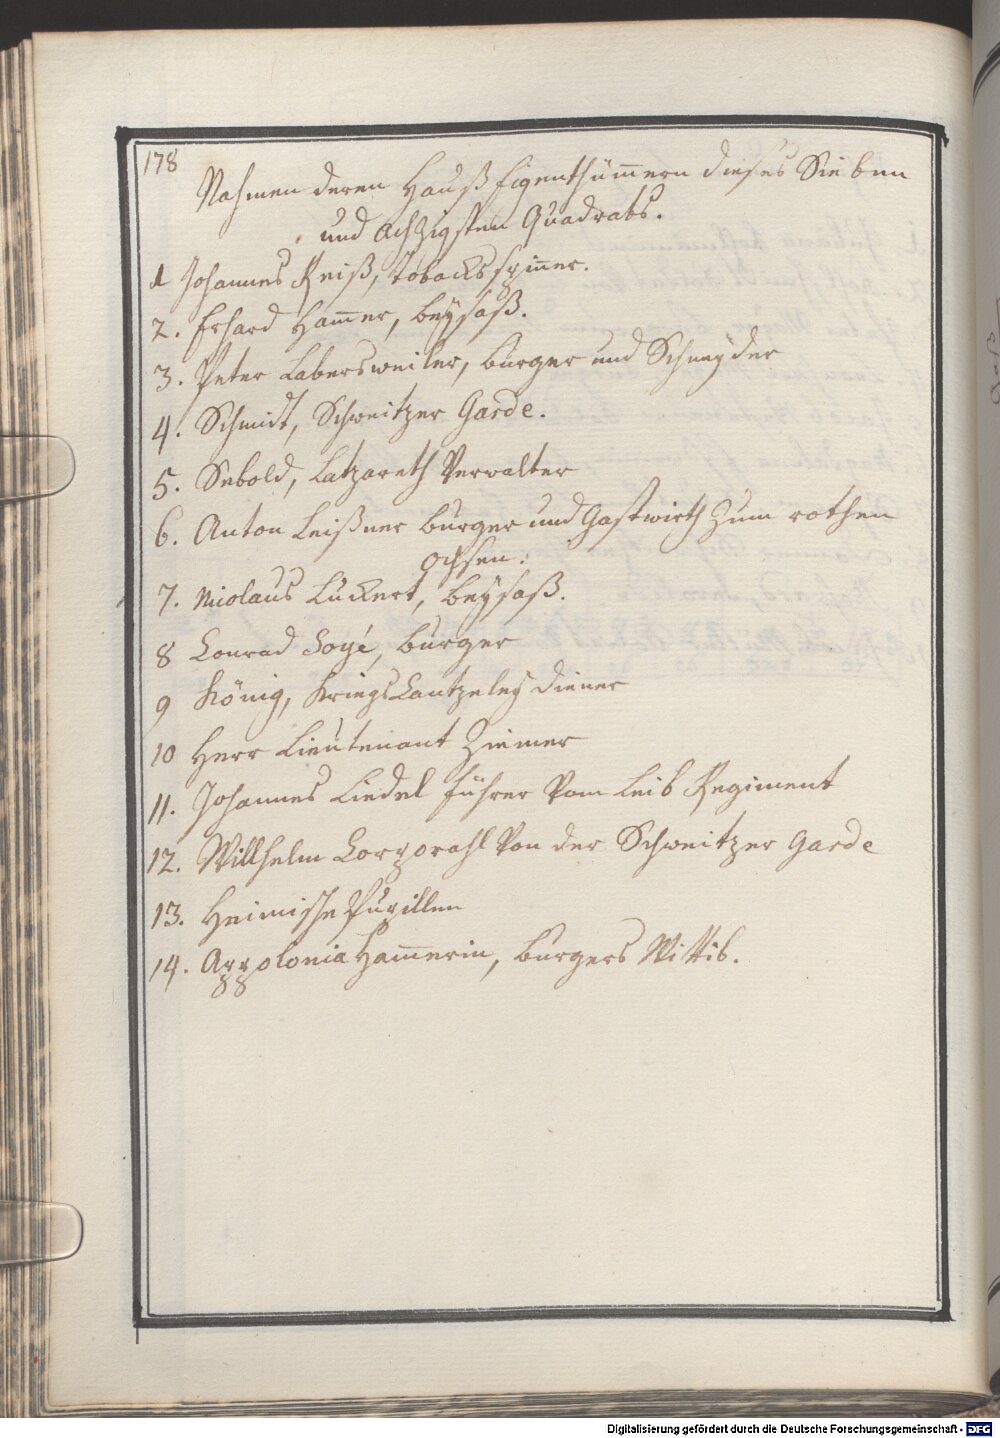 178
Nahmen deren Hauß Eigenthümern dieses Sieben
und Achzigsten Quadrats.
1 Johannes Reiß, Tobacksspiner.
2. Erhard Hamer, beysaß.
3. Peter Labersweiler, burger und Schneyder
4. Schmidt, Schweitzer Garde.
5. Sebold, Latzareth Verwalter
6. Anton Leißner burger und Gastwirth Zum rothen
Ochsen.
7. Nicolaus Luckert, beysaß.
8 Conrad Soyé, burger
9 König, Kriegs Cantzeley diener
10 Herr Lieutenant Ziemer
11. Johannes Liedel führer Vom Leib Regiment
12. Willhelm Corporahl Von der Schweitzer Garde
13. Heimische Pupillen
14. Appolonia Hamerin, burgers Wittib.
Digitalisierung gefördert durch die Deutsche Forschungsgemeinschaft - DFG